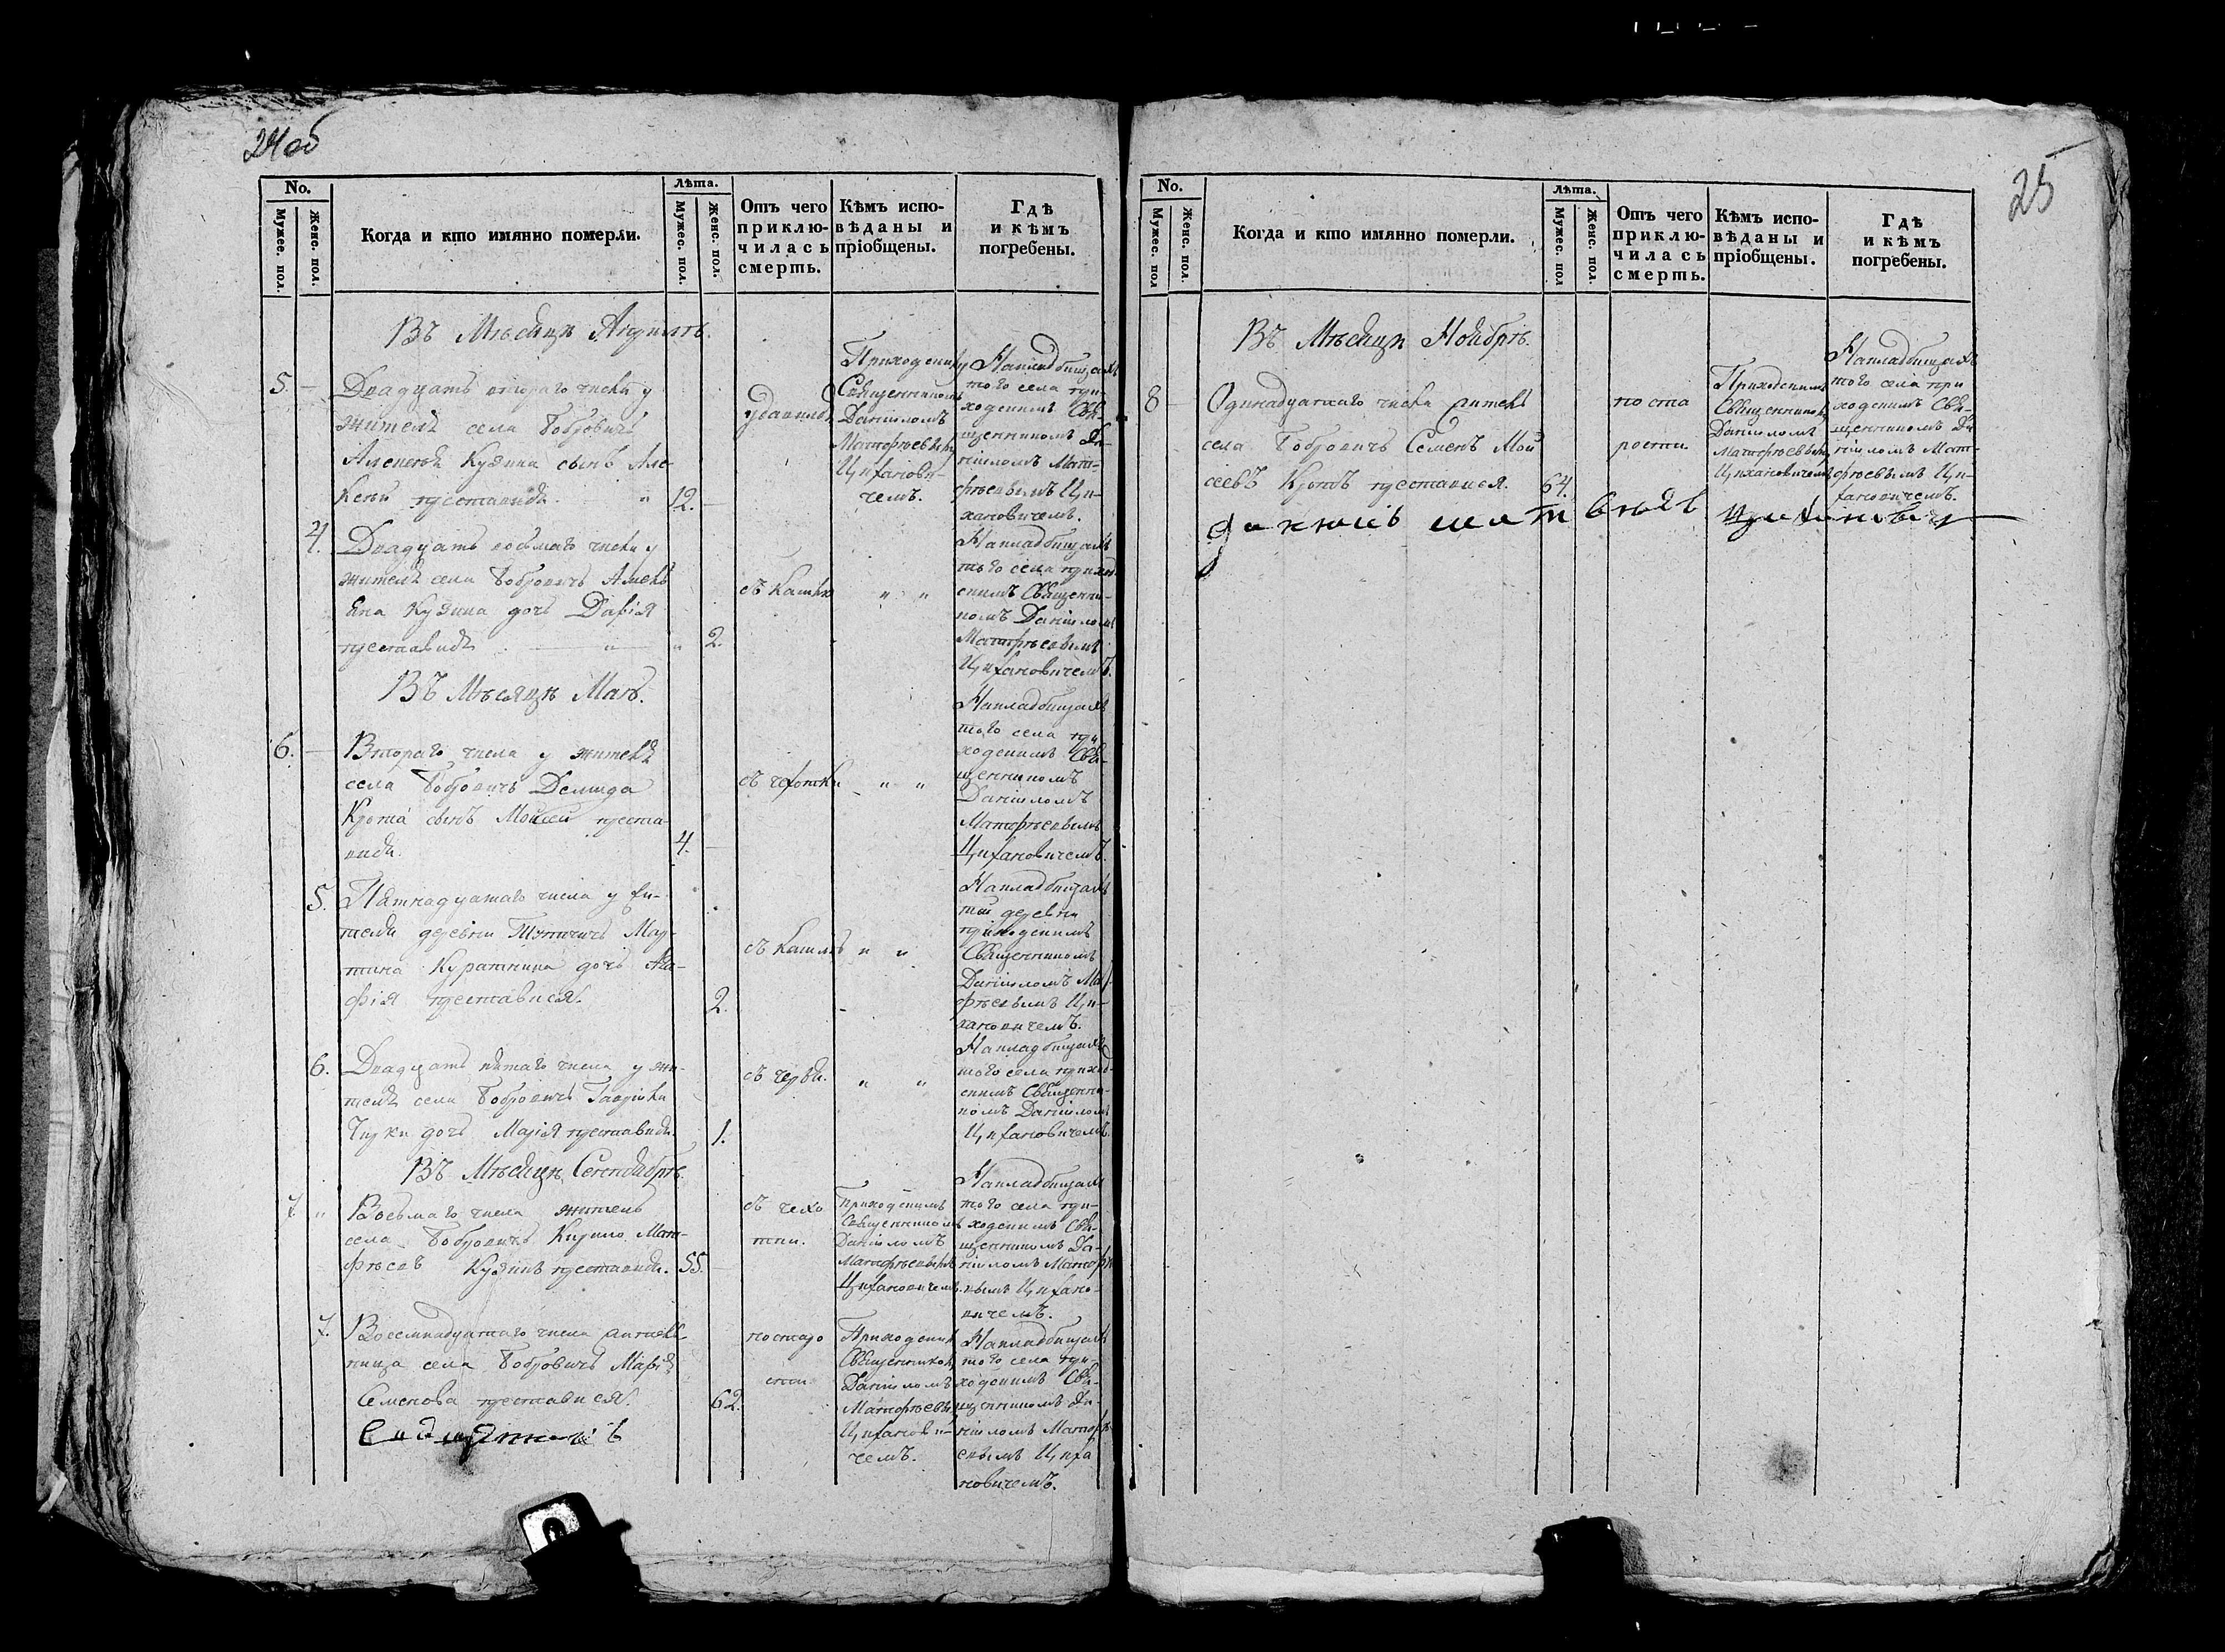 24об
No.
Мужес. пол.
Женс. пол.
Когда и кто имянно померли.
Лѣта.
Мужес. пол.
Женс. пол.
Отъ чего
приклю-
чилась
смерть.
Кѣмъ испо-
вѣданы и
пріобщены.
Гдѣ
и кѣмъ
погребены.
Въ Мѣсяцѣ
5.
Двадцать втораго числа у
жителя села Бобровичъ
Алексея Кудина сынъ Але-
ксей преставися
12.
удавился
Приходскимъ
Священникомъ
Даніиломъ
Матфѣевымъ
Цихнови-
чемъ.
На кладбищахъ
того села при-
ходскимъ Свя-
щенникомъ Да-
ніиломъ Мат-
фѣевымъ Ци-
хановичемъ.
4.
Двадцать восьмаго числа у
жителя села Бобровичъ
Кудина дочь Дарія
преставися
2.
съ кашлю
" "
На кладбищахъ
того села приход-
скимъ Священни-
комъ Даніиломъ
Матфѣевымъ
Цихановичемъ.
Въ Мѣсяцѣ Маѣ.
6.
Втораго числа у жителя
села Бобровичъ Демида
Крота сынъ Моисей преста-
вися.
4.
съ чехотки
" "
На кладбищахъ
того села при
ходскимъ Свя-
щенникомъ
Даніиломъ
Матфѣевымъ
Цихановичемъ.
5.
Пятнадцатаго числа у жи-
теля деревни Мар-
тина дочь Ага-
фія преставися.
2.
съ кашлю
" "
На кладбищахъ
той деревни
приходскимъ
Священникомъ
Даніиломъ Мат-
фѣевымъ Ци-
хановичемъ.
6.
Двадцать пятаго числа у жи-
теля села Бобровичъ
дочь Марія преставися.
1.
" "
На кладбищахъ
того села приход-
скимъ Священни-
комъ Даніиломъ
Цихановичемъ.
Въ Мѣсяцѣ Сентябрѣ.
7
Восьмаго числа житель
села Бобровичъ Кирило Мат-
фѣевъ Кудинъ преставися.
55.
съ чехо
тки.
Приходскимъ
Священникомъ
Даніиломъ
Матфѣевымъ
Цихановичемъ.
На кладбищахъ
того села при-
ходскимъ Свя-
щенникомъ Да-
ніиломъ Матфѣ
вымъ Цихано-
вичемъ.
7.
Восемнадцатаго числа житель-
ница села Бобровичъ Марія
Семенова преставися.
62.
по старо
сти
Приходскимъ
Священникомъ
Даніиломъ
Матфѣевымъ
Цихнови-
чемъ.
На кладбищахъ
того села при-
ходскимъ Свя-
щенникомъ Да-
ніиломъ Матфѣ
евымъ Циха
новичемъ.
25
No.
Мужес. пол
Женс. пол.
Когда и кто имянно померли.
Лѣта.
Мужес. пол
Женс. пол.
Отъ чего
приклю-
чилась
смерть.
Кѣмъ испо-
вѣданы и
пріобщены.
Гдѣ
и кѣмъ
погребены.
Въ Мѣсяцѣ Ноябрѣ.
8
Одинадцатаго числа житель
села Бобровичъ Семенъ Мой
сеевъ Кротъ преставися.
64.
по ста
рости.
Приходскимъ
Священникомъ
Даніиломъ
Матфѣевымъ
Цихановичемъ
На кладбищахъ
того села при
ходскимъ Свя-
щенникомъ Да
ніиломъ Мат-
фѣевымъ Ци-
хановичемъ.